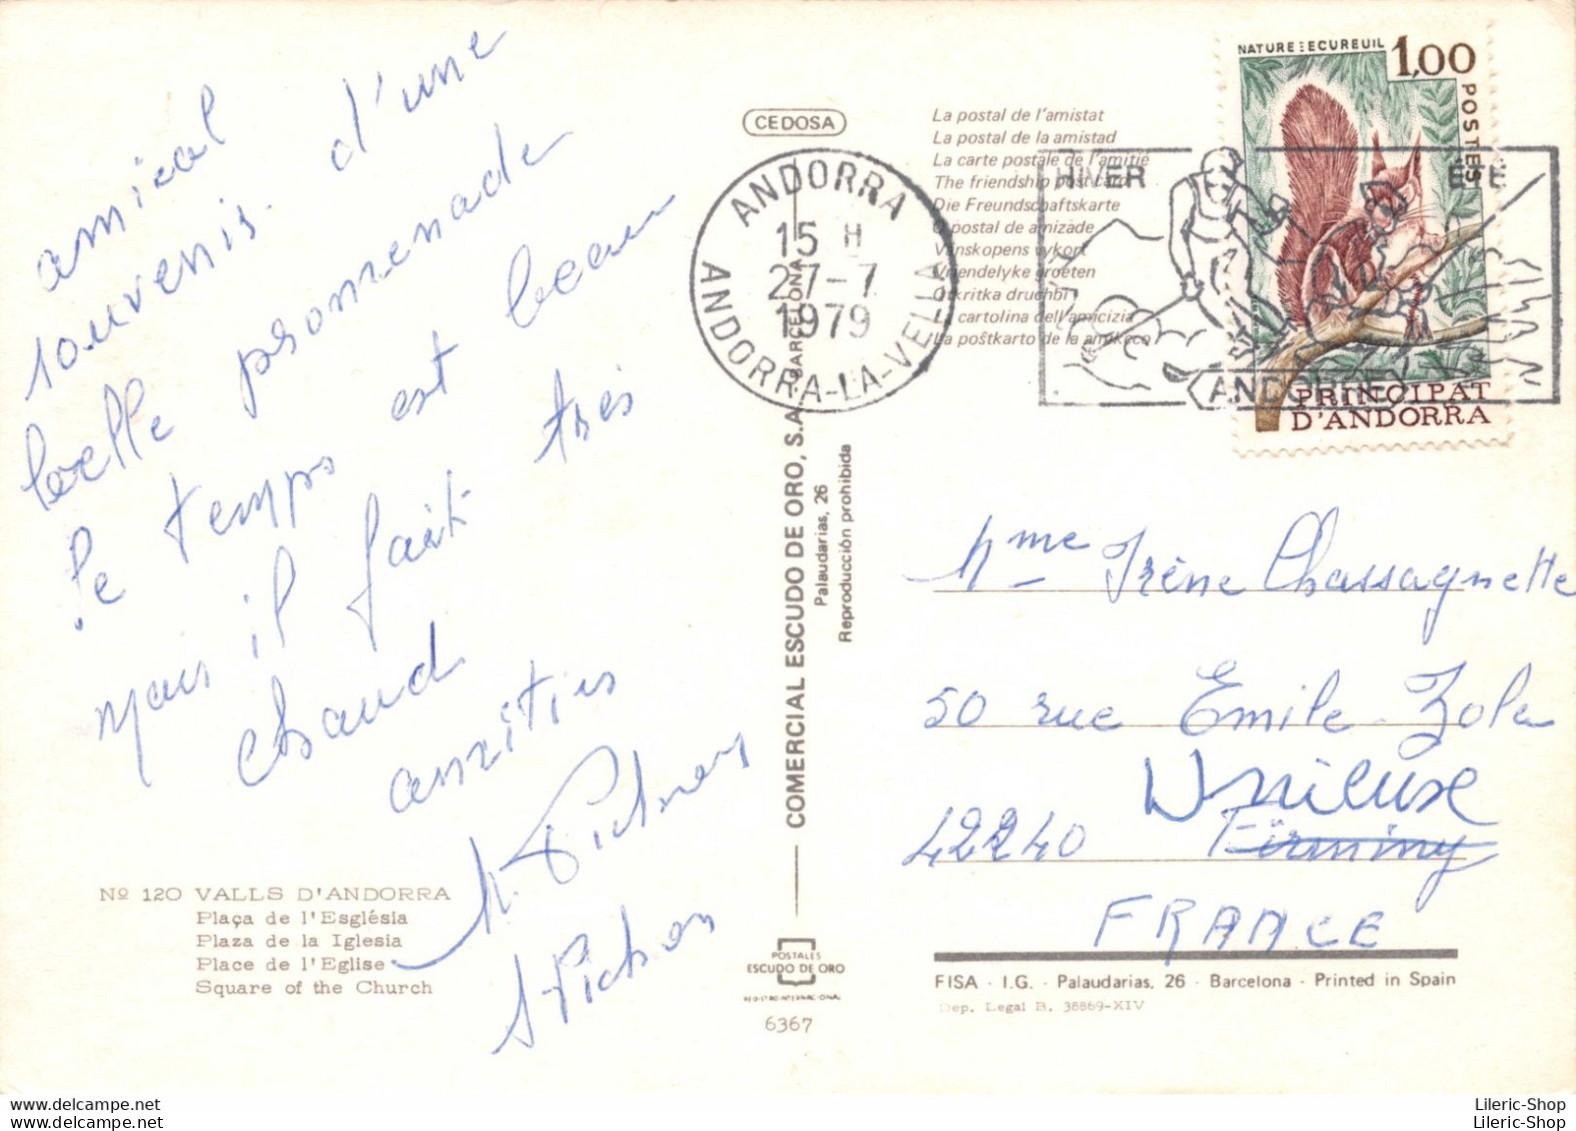 amical
souvenir d'une
belle promenade
le temps est beau
mais il fait très
chaud
amitiés
Nº 120 VALLS D'ANDORRA
Plaça de l'Església
Plaza de la Iglesia
Place de l'Eglise
Square of the Church
CEDOSA
COMERCIAL ESCUDO DE ORO, S.A. BARCELONA
Palaudarias, 26
Reproducción prohibida
POSTALES
ESCUDO DE ORO
REGISTRO INTERNACIONAL
6367
La postal de l'amistat
La postal de la amistad
La carte postale de l'amitié
The friendship post card
Die Freundschaftskarte
O postal de amizade
Vänskapens vykort
Vriendelyke groeten
Otkritka druchbi
La cartolina dell'amicizia
La poŝtkarto de la amikeco
ANDORRA
15 H
27-7
1979
ANDORRA-LA-VELLA
HIVER
ETE
ANDORRE
NATURE ECUREUIL
1,00
POSTES
PRINCIPAT
D'ANDORRA
Mme Irène Chassagnette
50 rue Emile Zola
Unieux
42240 Firminy
FRANCE
FISA - I.G. - Palaudarias, 26 - Barcelona - Printed in Spain
Dep. Legal B. 38869-XIV
Lileric-Shop
Lileric-Shop